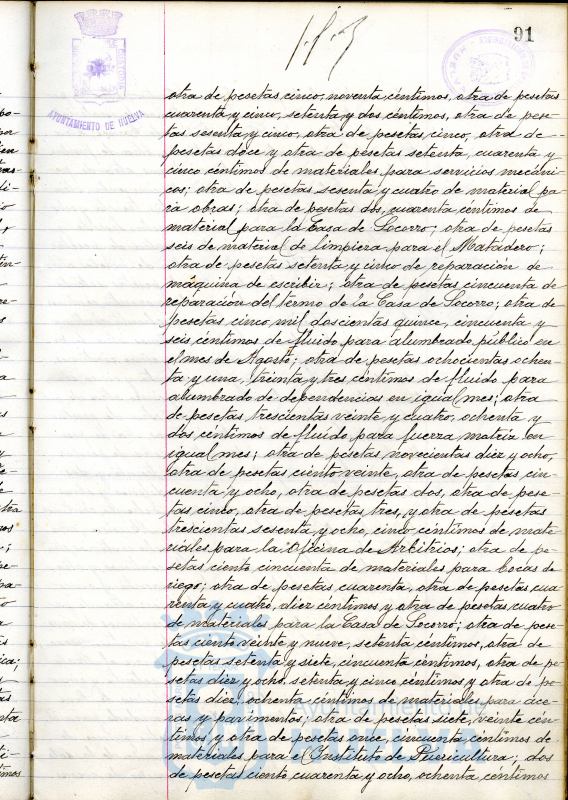 91
AYUNTAMIENTO DE HUELVA
otra de pesetas cinco, noventa céntimos, otra de pesetas
cuarenta y cinco, setenta y dos céntimos, otra de pese-
tas sesenta y cinco, otra de pesetas cinco, otra de
pesetas doce y otra de pesetas setenta, cuarenta y
cinco céntimos de materiales para servicios mecáni-
cos; otra de pesetas sesenta y cuatro de material pa-
ra obras; otra de pesetas dos, cuarenta céntimos de
material para la Casa de Socorro; otra de pesetas
seis de material de limpieza para el Matadero;
otra de pesetas setenta y cinco de reparación de
máquina de escribir; otra de pesetas cincuenta de
reparación del termo de la Casa de Socorro; otra de
pesetas cinco mil doscientas quince, cincuenta y
seis céntimos de fluido para alumbrado público en
el mes de Agosto; otra de pesetas ochocientas ochen-
ta y una, treinta y tres céntimos de fluido para
alumbrado de dependencias en igual mes; otra
de pesetas trescientas veinte y cuatro, ochenta y
dos céntimos de fluído para fuerza motriz en
igual mes; otra de pesetas novecientas diez y ocho,
otra de pesetas ciento veinte, otra de pesetas cin-
cuenta y ocho, otra de pesetas dos, otra de pese-
tas cinco, otra de pesetas tres, y otra de pesetas
trescientas sesenta y ocho, cinco céntimos de mate-
riales para la Oficina de Arbitrios; otra de pe-
setas ciento cincuenta de materiales para bocas de
riego; otra de pesetas cuarenta, otra de pesetas cua-
renta y cuatro, diez céntimos y otra de pesetas cuatro
de materiales para la Casa de Socorro; otra de pese-
tas ciento veinte y nueve, setenta céntimos, otra de
pesetas setenta y siete, cincuenta céntimos, otra de pe-
setas diez y ocho, setenta y cinco céntimos y otra de pe-
setas diez, ochenta céntimos de materiales para ace-
ras y pavimentos; otra de pesetas siete, veinte cén-
timos y otra de pesetas once, cincuenta céntimos de
materiales para el Instituto de Puericultura; dos
de pesetas ciento cuarenta y ocho, ochenta céntimos